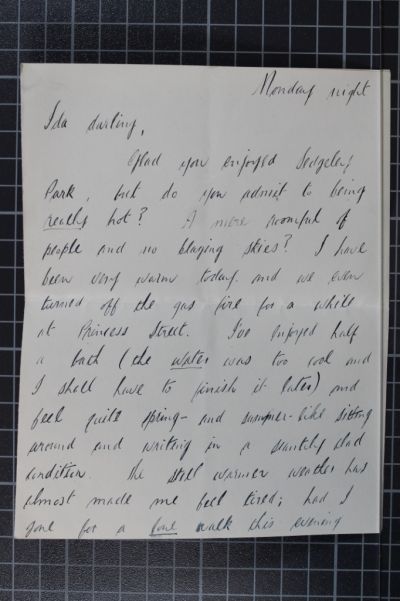 Monday night
Ida darling,
Glad you enjoyed Sedgeley
Park, but do you admit to being
really hot? A mere roomful of
people and no blazing skies? I have
been very warm today, and we even
turned off the gas fire for a while
at Princess Street. I've enjoyed half
a bath (the water was too cool and
I shall have to finish it later) and
feel quite spring- and summer-like sitting
around and writing in a scantily clad
condition. The still warmer weather has
almost made me feel tired; had I
gone for a long walk this evening